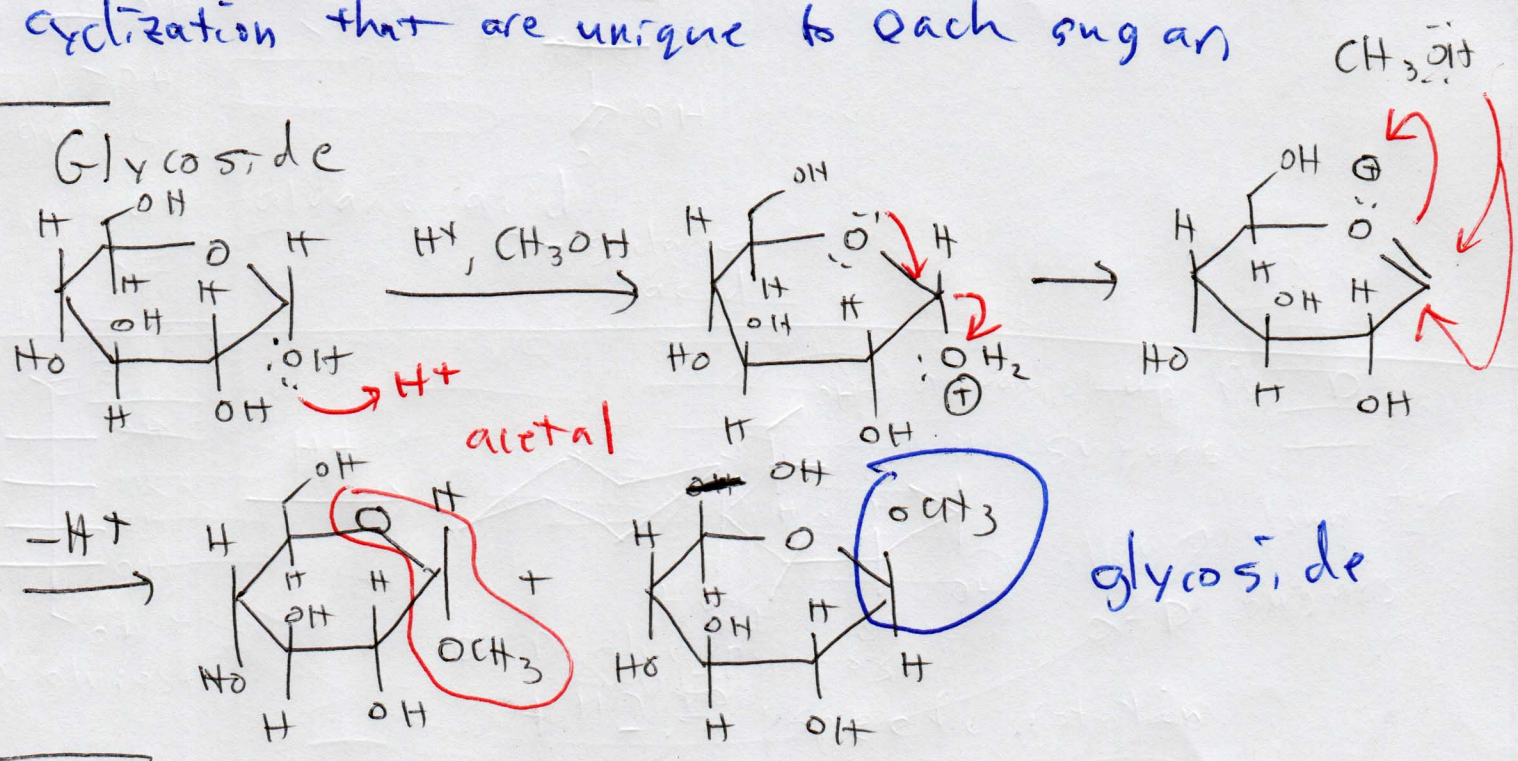 cyclization that are unique to each sugar
CH3OH
Glycoside
OH
H
O
H
H
H
OH
HO
OH
H
OH
H+
H+, CH3OH
OH
H
O
H
H
H
OH
HO
OH2
+
H
OH
OH
+
H
O
H
OH
H
HO
H
OH
acetal
-H+
OH
H
O
H
H
H
OH
HO
OCH3
H
OH
+
OH
OCH3
H
O
H
H
OH
HO
H
H
OH
glycoside